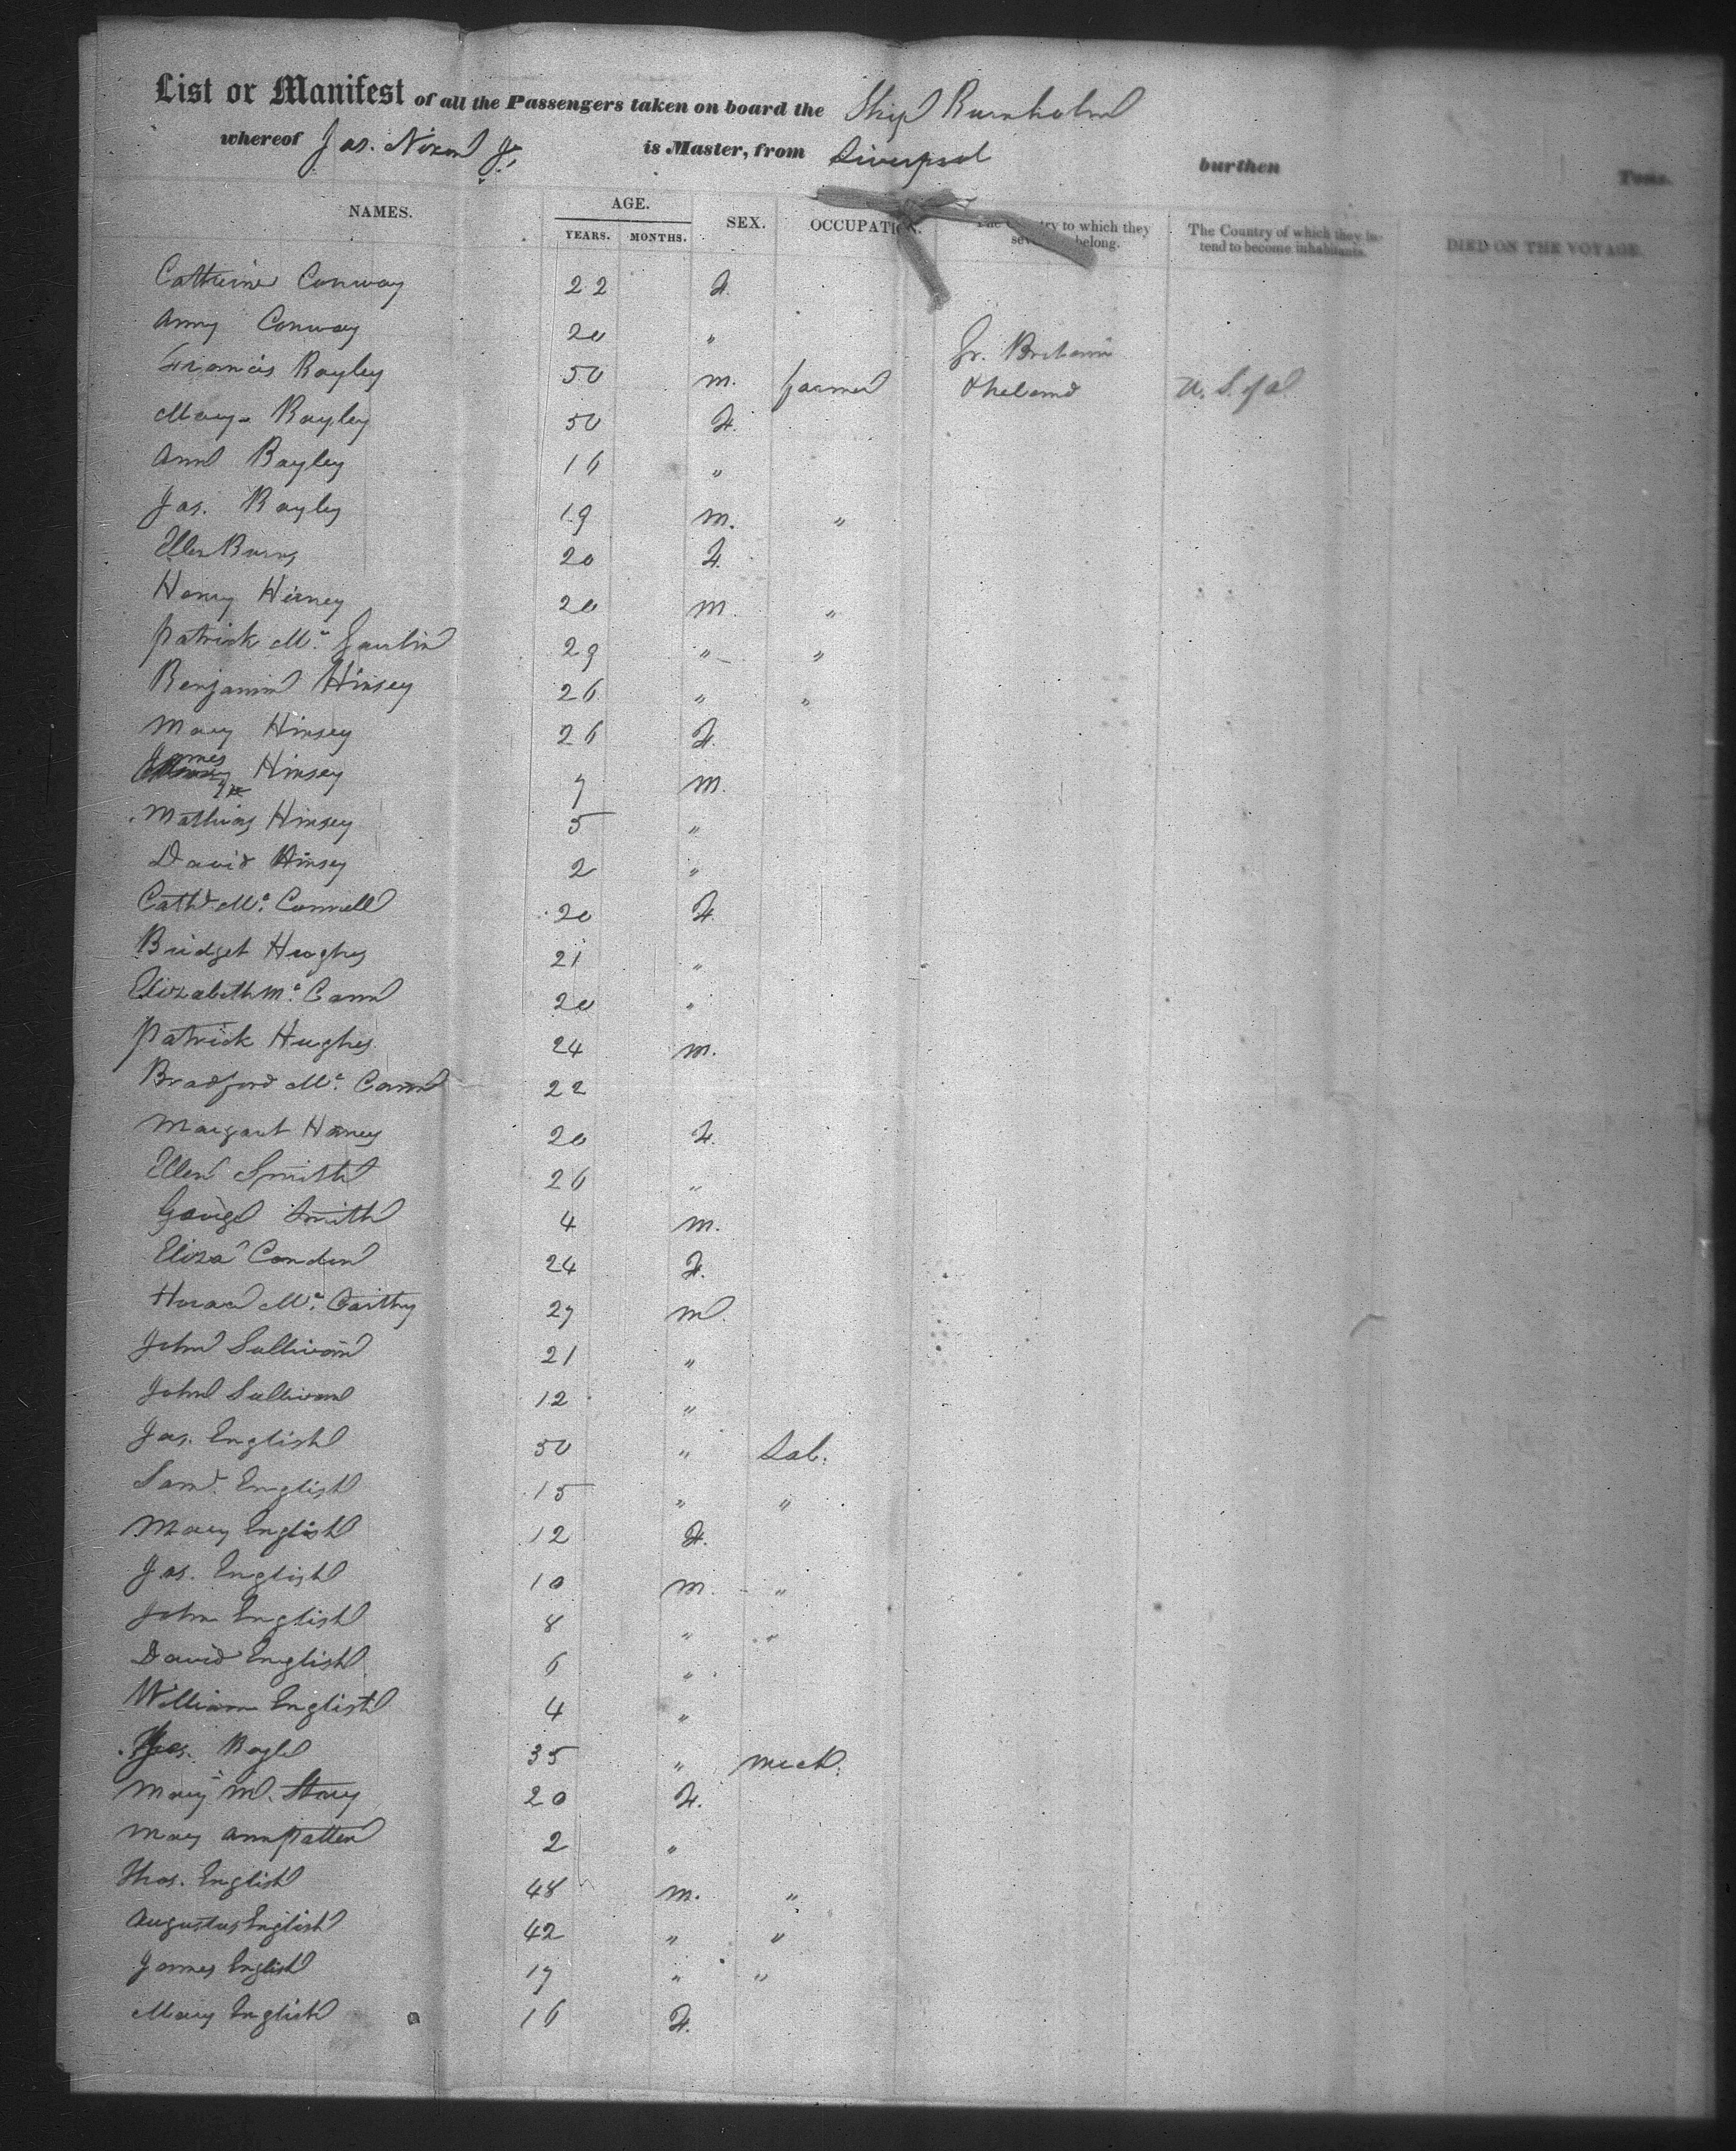 List or Manifest of all the Passengers taken on board the Ship Burnholm
whereof Jas. Nixon Jr. is Master, from Liverpool burthen Tons.
NAMES. AGE. YEARS. MONTHS. SEX. OCCUPATION. The Country to which they severally belong. The Country of which they intend to become inhabitants. DIED ON THE VOYAGE.
Catherine Conway 22 F.
Anny Conway 20 "
Gr. Britain
Francis Bayley 50 m. farmer & Ireland U. S. of A
Mary Bayley 50 F.
Ann Bayley 16 "
Jas. Bayley 19 m. "
Ellen Burns 20 F.
Henry 20 m. "
Patrick Mc. 29 " "
Benjamin Hinsey 26 " "
Mary Hinsey 26 F.
James Hinsey 7 m.
Mathias Hinsey 5 "
David Hinsey 2 "
Cath. Mc. Connell 20 F.
Bridget Hughes 21 "
Elizabeth Mc. Cann 20 "
Patrick Hughes 24 m.
Bradford Mc. Cann 22
Margaret Haney 20 F.
Ellen Smith 26 "
George Smith 4 m.
Eliza Conden 24 F.
Mc. Carthy 27 m.
John Sullivan 21 "
John Sullivan 12 "
Jas. English 50 " Lab.
Saml. English 15 " "
Mary English 12 F.
Jas. English 10 m. "
John English 8 " "
David English 6 "
William English 4 "
Boyle 35 " mech.
Mary M. Story 20 F.
Mary Ann Patten 2 "
Thos. English 48 m. "
Augustus English 42 " "
James English 17 " "
Mary English 16 F.